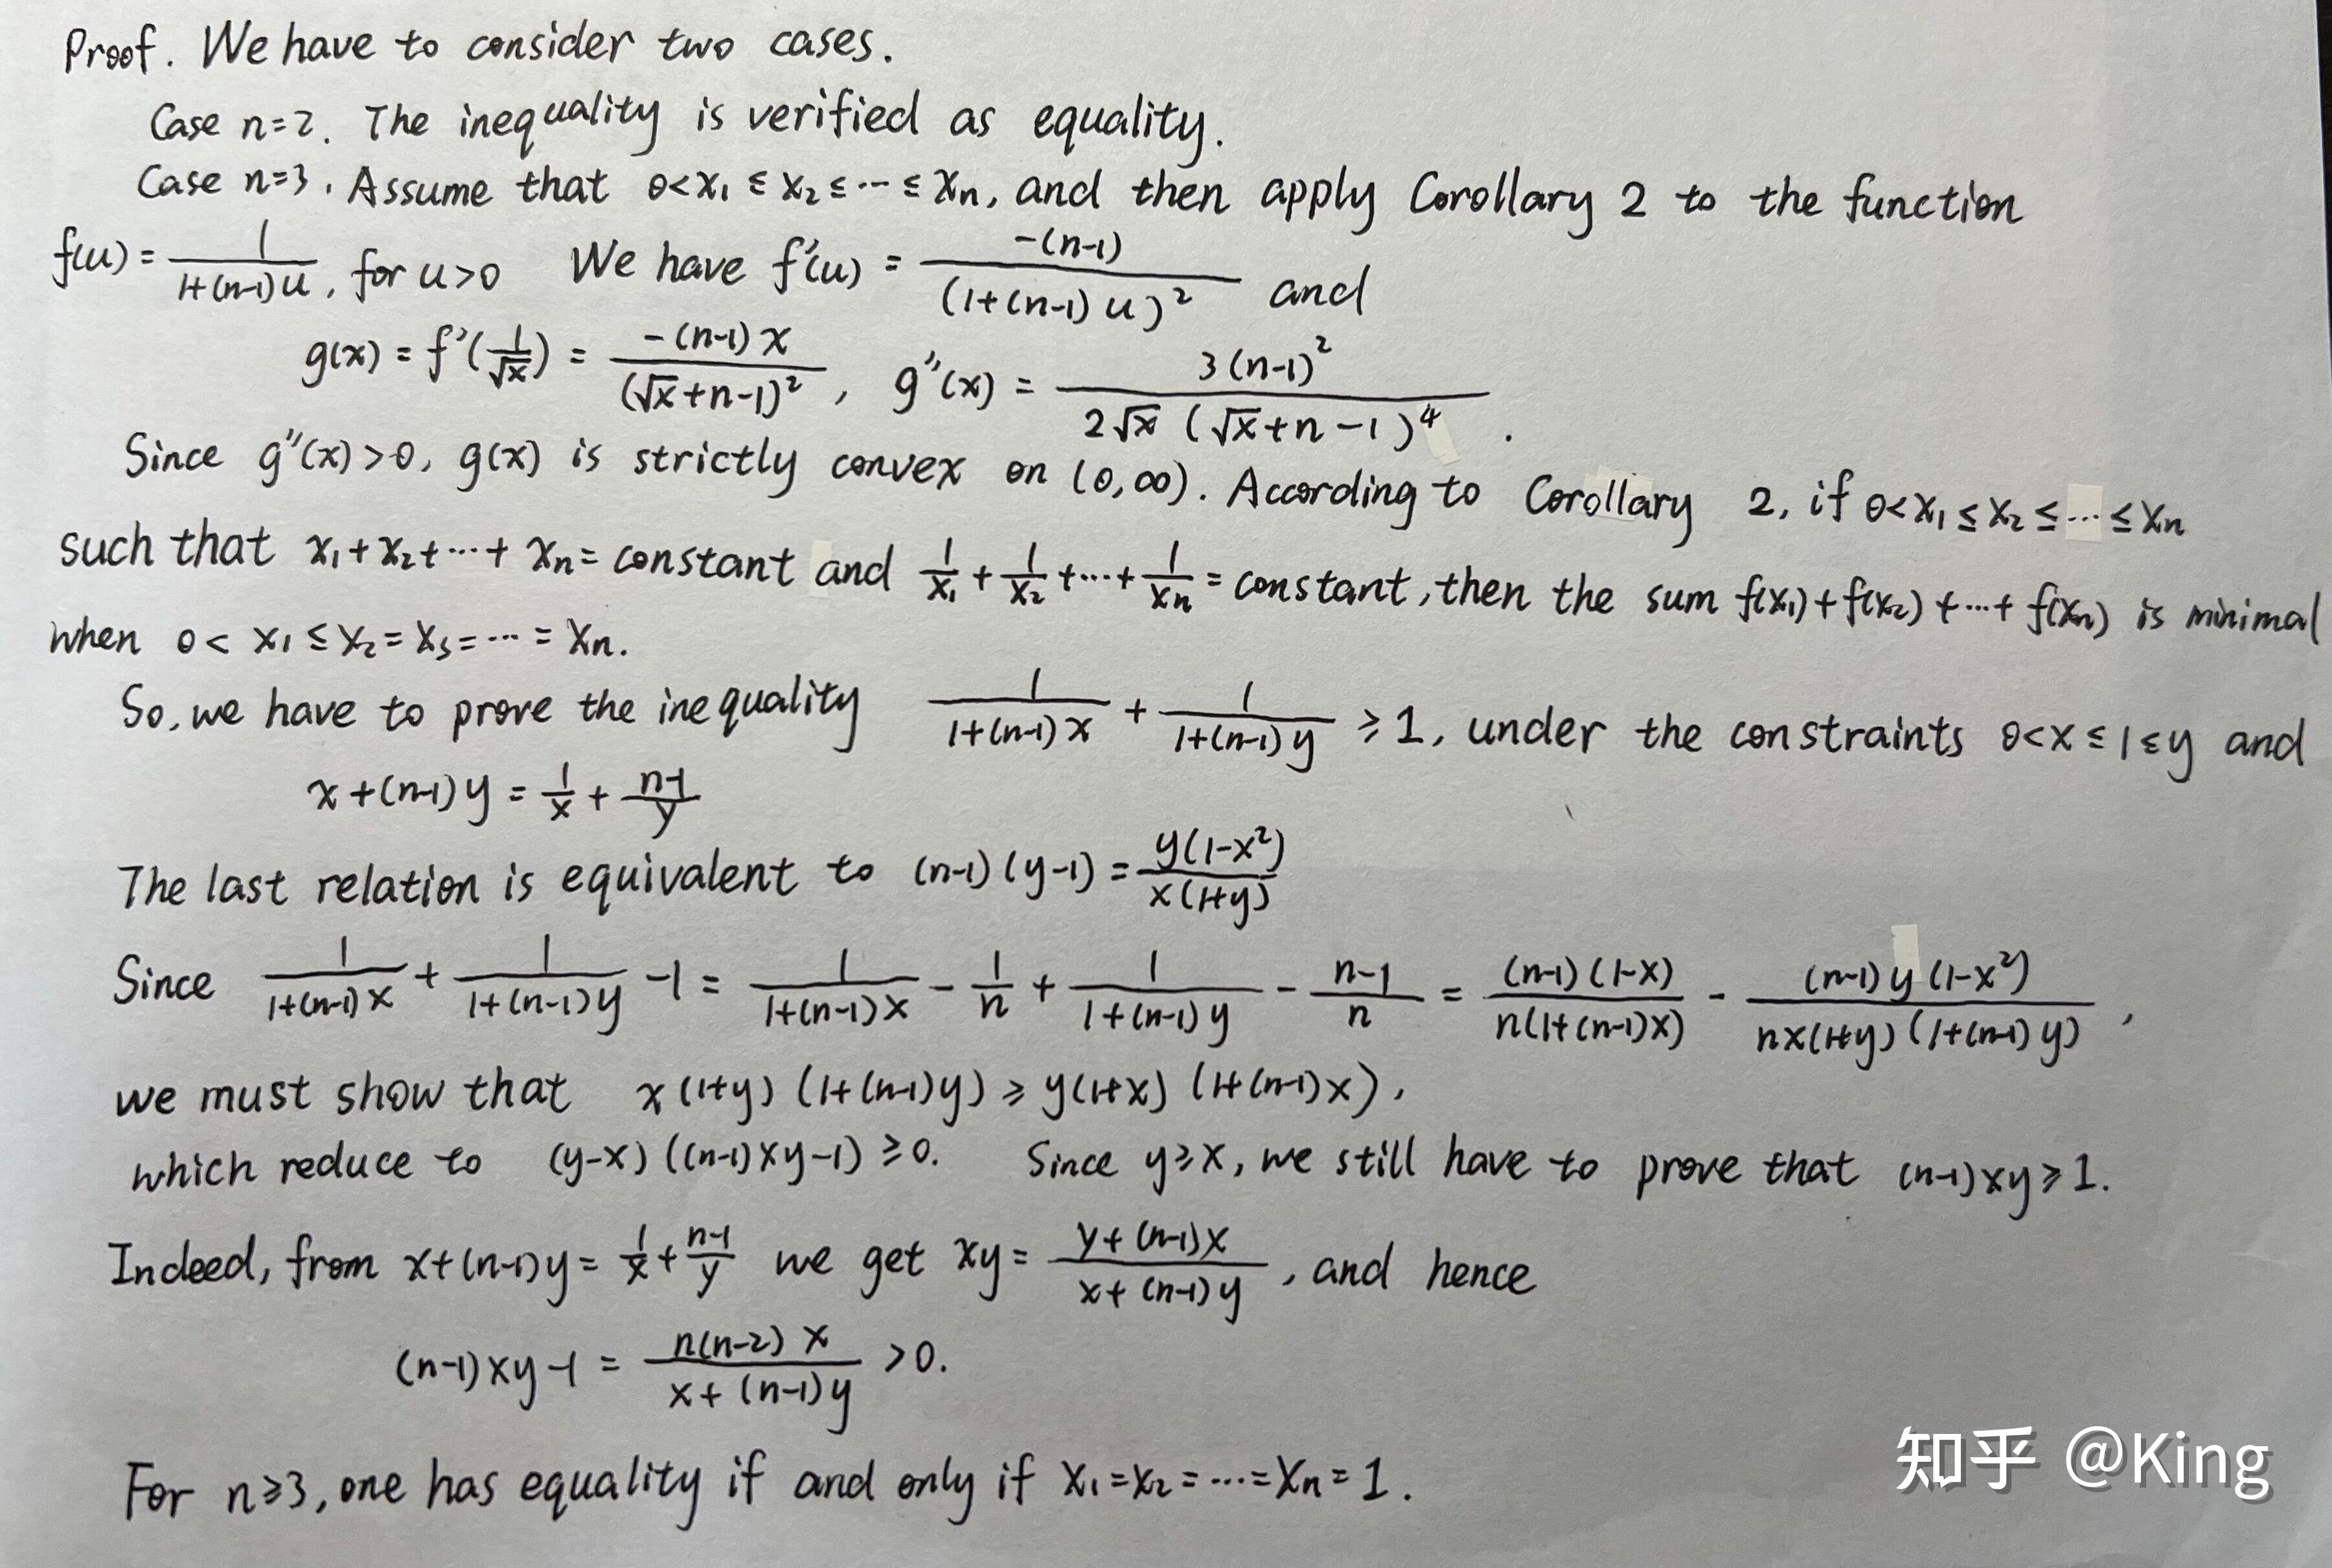 Proof. We have to consider two cases.
Case n=2. The inequality is verified as equality.
Case n=3. Assume that 0<x₁≤x₂≤···≤xₙ, and then apply Corollary 2 to the function
f(u) = 1/(1+(n-1)u), for u>0 We have f'(u) = -(n-1)/(1+(n-1)u)² and
g(x) = f'(1/√x) = -(n-1)x/(√x+n-1)², g''(x) = 3(n-1)²/(2√x(√x+n-1)⁴).
Since g''(x)>0, g(x) is strictly convex on (0,∞). According to Corollary 2, if 0<x₁≤x₂≤···≤xₙ
such that x₁+x₂+···+xₙ = constant and 1/x₁+1/x₂+···+1/xₙ = constant, then the sum f(x₁)+f(x₂)+···+f(xₙ) is minimal
when 0<x₁≤x₂=x₃=···=xₙ.
So, we have to prove the inequality 1/(1+(n-1)x) + 1/(1+(n-1)y) ≥ 1, under the constraints 0<x≤1≤y and
x+(n-1)y = 1/x + (n-1)/y
The last relation is equivalent to (n-1)(y-1) = y(1-x²)/(x(1+y))
Since 1/(1+(n-1)x) + 1/(1+(n-1)y) -1 = 1/(1+(n-1)x) - 1/n + 1/(1+(n-1)y) - (n-1)/n = (n-1)(1-x)/(n(1+(n-1)x)) - (n-1)y(1-x²)/(nx(1+y)(1+(n-1)y)),
we must show that x(1+y)(1+(n-1)y) ≥ y(1+x)(1+(n-1)x),
which reduce to (y-x)((n-1)xy-1) ≥ 0. Since y≥x, we still have to prove that (n-1)xy ≥ 1.
Indeed, from x+(n-1)y = 1/x + (n-1)/y we get xy = (y+(n-1)x)/(x+(n-1)y), and hence
(n-1)xy-1 = n(n-2)x/(x+(n-1)y) > 0.
For n≥3, one has equality if and only if x₁=x₂=···=xₙ=1.
知乎 @King